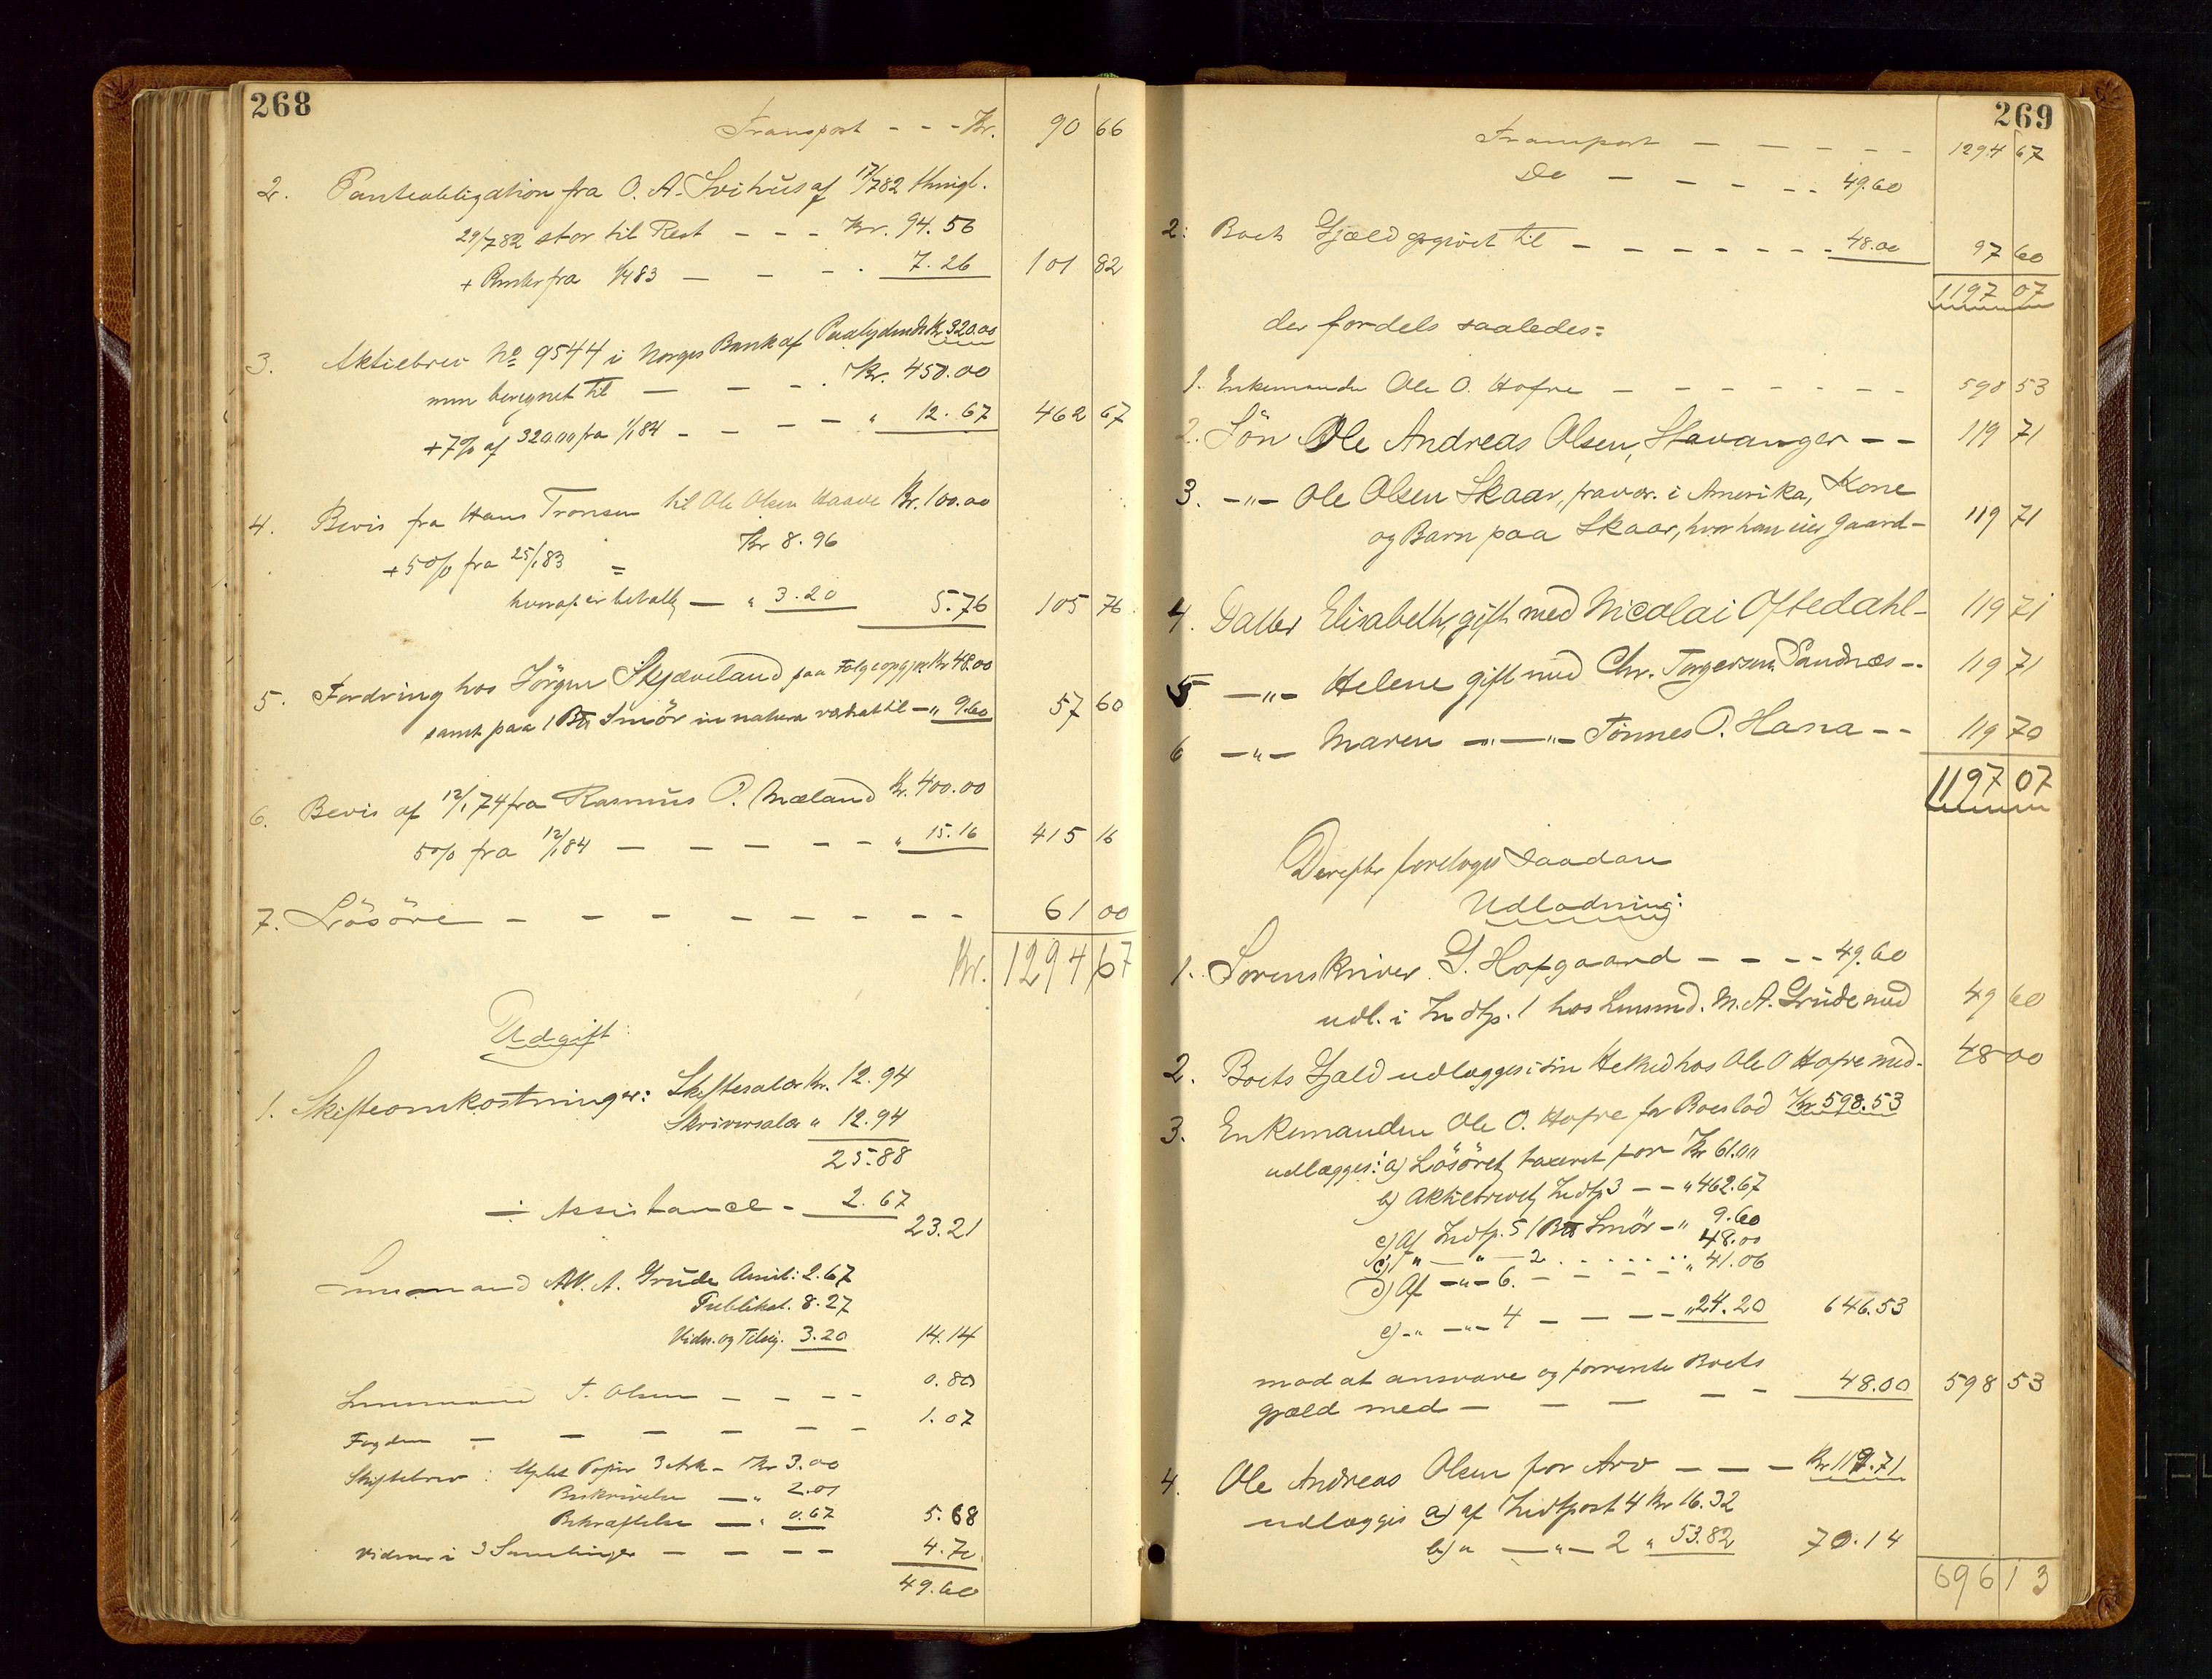 268
Transport - - - Kr. 90 66
2. Panteobligation fra O. A. Svihus af 17/7 82 thingl.
29/7 82 stor til Rest - - - Kr. 94.56
+ Renter fra 1/4 83 - - - 7.26 101 82
3. Aktiebrev No 9544 i Norges Bank af Paalydende Kr 320.00
nu beregnet til - - - Kr. 450.00
+ 7% af 320.00 fra 1/1 84 - - - - " 12.67 462 67
4. Bevis fra Hans Tronsen til Ole Olsen Haave Kr. 100.00
+ 5% fra 25/1 83 = Kr 8.96
hvoraf er betalt - " 3.20 5.76 105 76
5. Fordring hos Jörgen Skjæveland paa Folgeopgjør Kr 48.00
samt paa 1 Bts Smör in natura værdsat til - " 9.60 57 60
6. Bevis af 12/1 74 fra Rasmus P. Mæland Kr. 400.00
5% fra 12/1 84 - - - - - - " 15.16 415 16
7. Lösöre - - - - - - - - - 61 00
Kr. 1294 67
Udgift:
1. Skifteomkostninger: Skiftesalær Kr. 12.94
Skriversalær " 12.94
25.88
÷ Assistance - 2.67
23.21
Lensmand M. A. Grude Assist: 2.67
Publikat. 8.27
Vidn. og Tilsig. 3.20 14.14
Lensmand T. Olsen - - - - 0.80
Fogden - - - - - - 1.07
Skiftebrev: Stplet Papir 3 Ark - Kr 3.00
Beskrivelse - " 2.01
Bekræftelse - " 0.67 5.68
Vidner i 3 Samlinger - - - - 4.70
49.60
269
Transport - - - - - 1294 67
Do - - - - - 49.60
2: Boets Gjæld opgivet til - - - - - - - 48.00 97 60
1197 07
der fordels saaledes:
1. Enkemanden Ole O. Hofre - - - - - - - 598 53
2. Sön Ole Andreas Olsen, Stavanger - - 119 71
3. -"- Ole Olsen Skaar, fravær. i Amerika, Kone
og Barn paa Skaar, hvor han eies Gaard - 119 71
4. Datter Elisabeth, gift med Nicolai Oftedahl - 119 71
5 -"- Helene gift med Chr. Torgersen Sandnæs - - 119 71
6 -"- Maren -"- -"- Tönnes O. Hana - - 119 70
1197 07
Derefter foretoges saadan
Udlodning:
1. Sorenskriver G. Hofgaard - - - - 49.60
udl. i Indtp. 1 hos Lensmd. M. A. Grude med 49 60
2. Boets Gjæld udlægges i sin Helhed hos Ole O Hofre med - 48 00
3. Enkemanden Ole O. Hofre for Boeslod Kr 598.53
udlægges: a) Lösöret, taxeret for Kr 61.00
b) Aktiebrevet, Indtp 3 - - " 462.67
c) Af Indtp. 5 1 Bts Smör - " 9.60
48.00
c) " - " - 2 . . . . . . " 41.06
d) Af -"- 6. - - - -
e) -" -"- 4 - - - - " 24.20 646.53
mod at ansvare og forrente Boets
gjæld med - - - - - 48.00 598 53
4. Ole Andreas Olsen for Arv - - - Kr 119.71
udlægges a) af Indtpost 4 Kr 16.32
b) " -"- 2 " 53.82 70.14
696 13